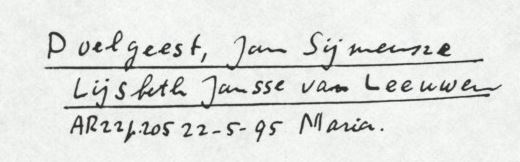 Poelgeest, Jan Sijmensze
Lijsbeth Jansse van Leeuwen
AR22f.205 22-5-95 Maria.